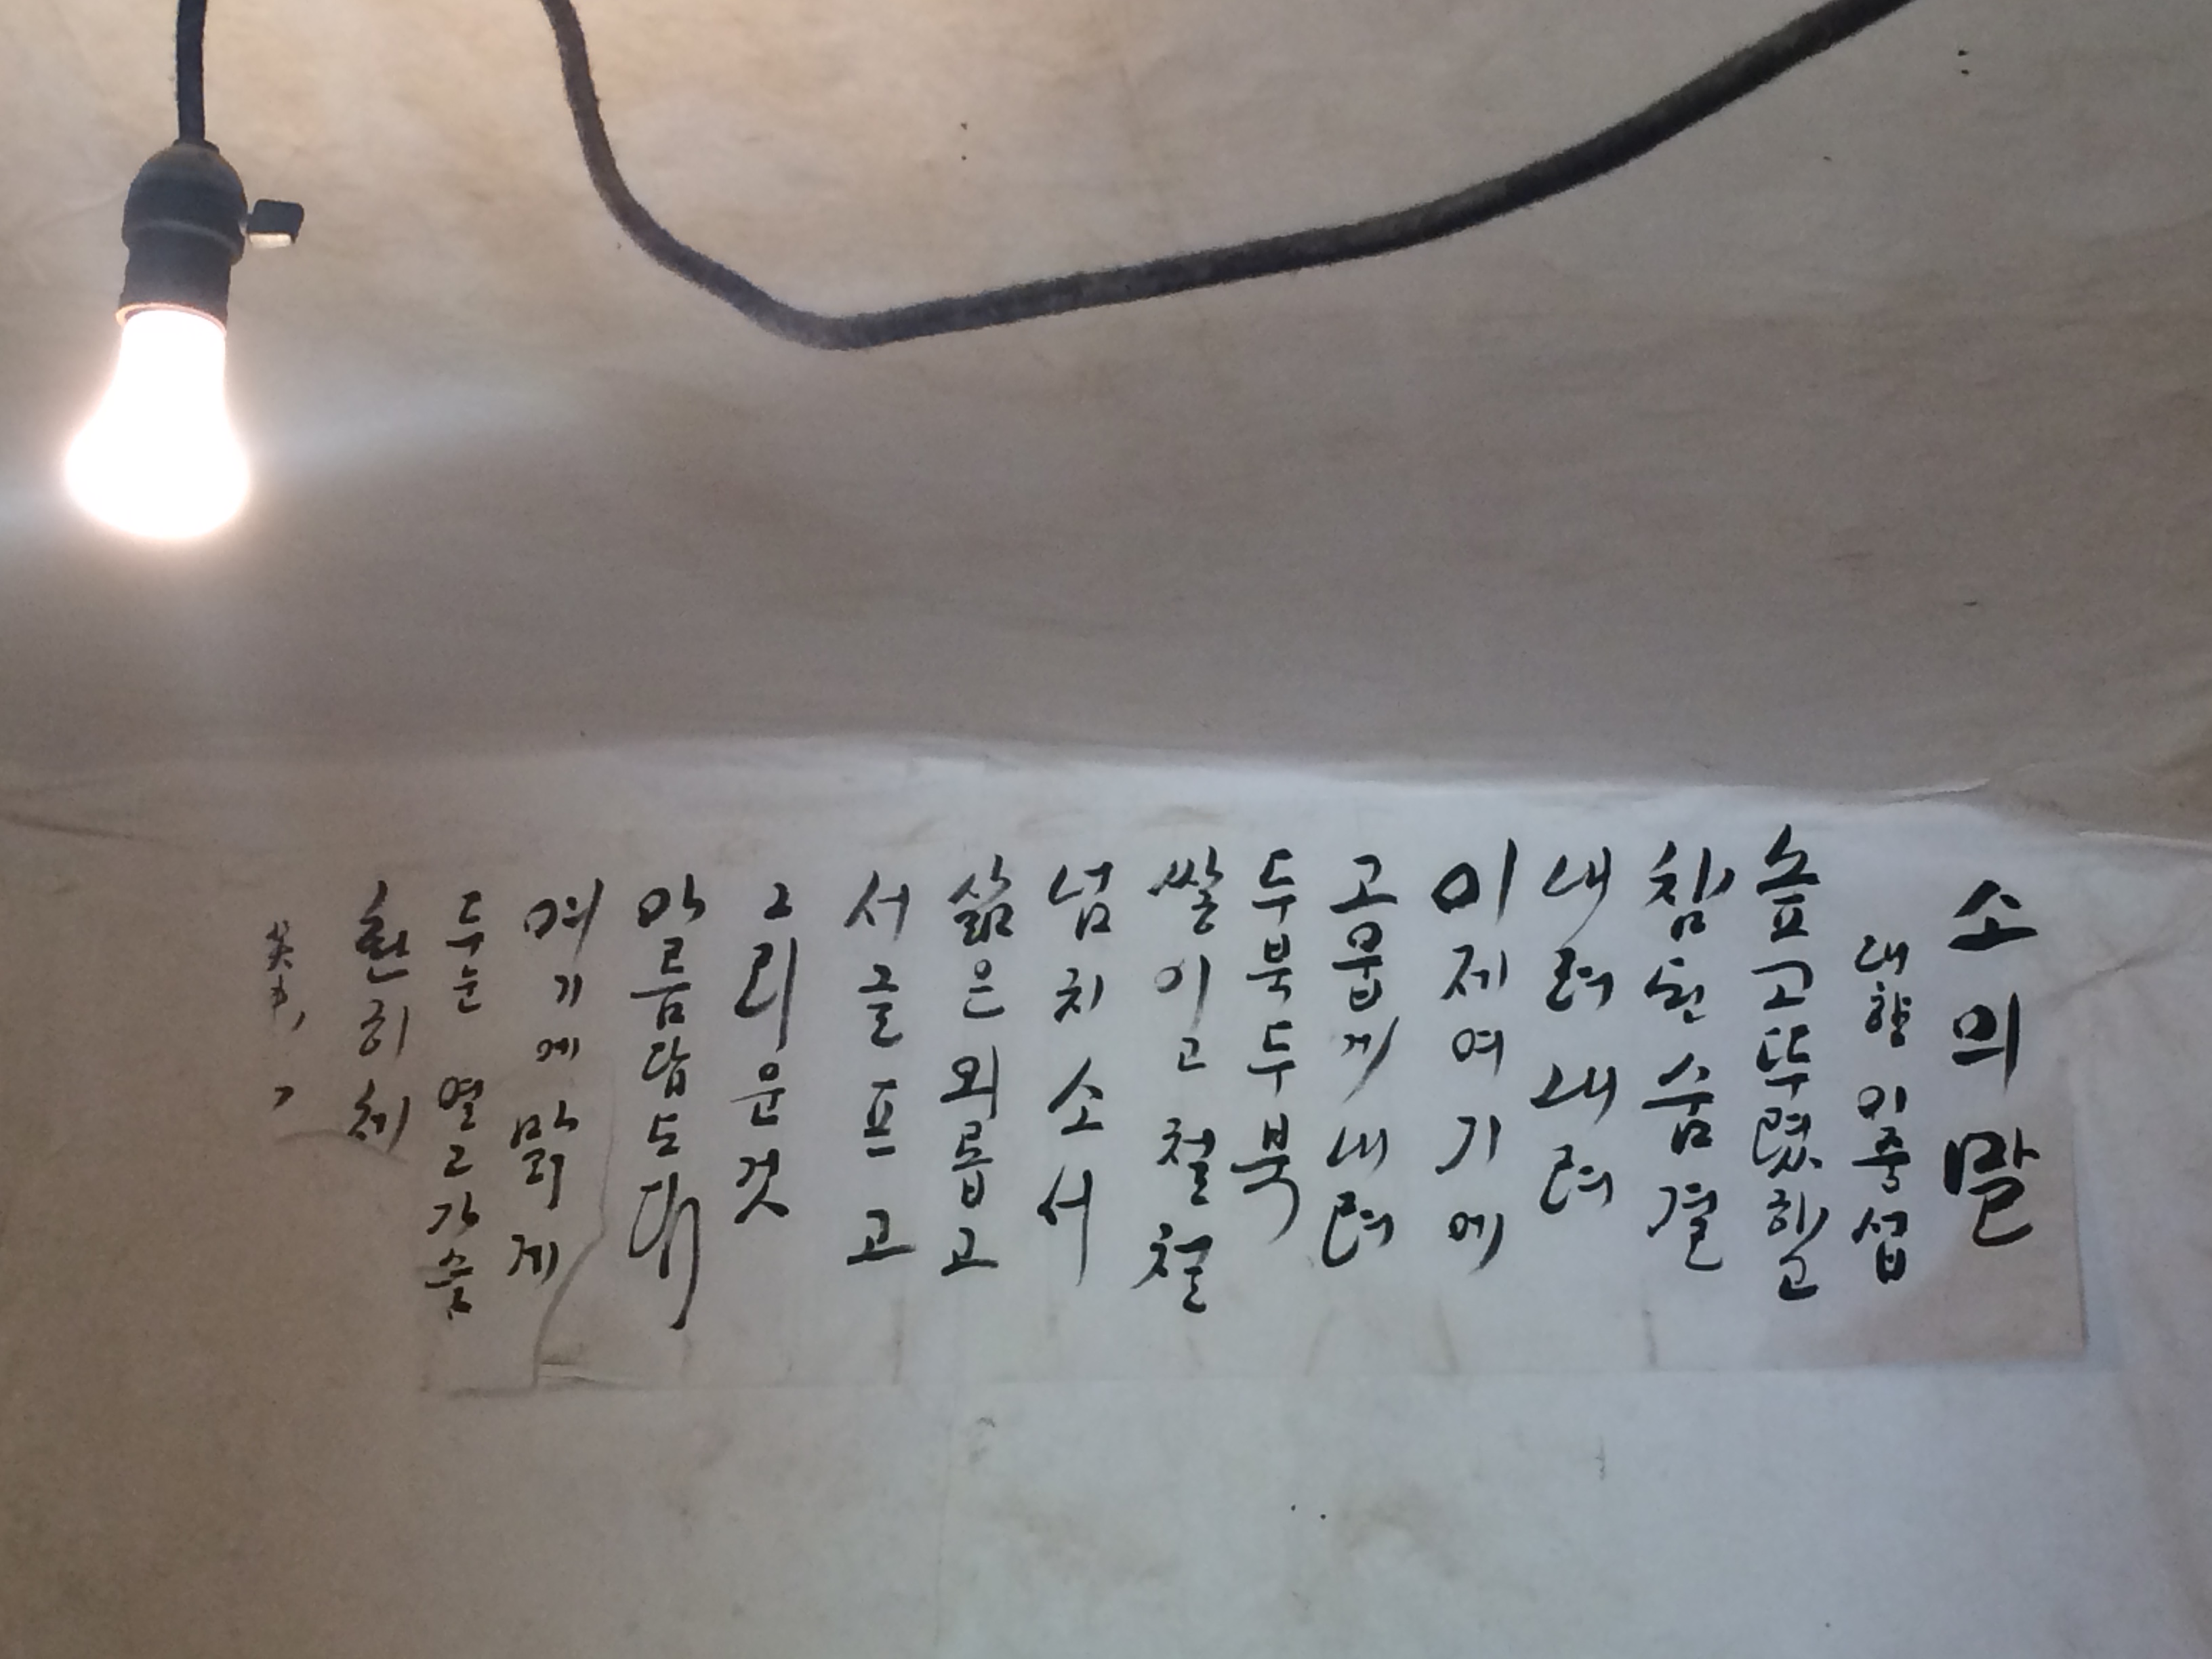 소의 말
대향 이중섭
슾고 뚜렸하고
참된 숨결
내려 내려
이제 여기에
고웁게 내려
두북 두북
쌓이고 철철
넘치소서
삶은 외롭고
서글프고
그리운 것
아름답도다
여기에 맑게
두눈 열고 가슴
환히 헤